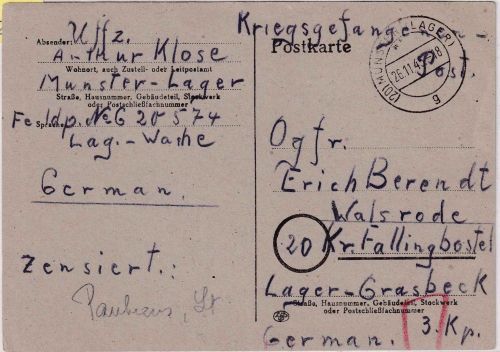 Absender: Uffz.
Arthur Klose
Wohnort, auch Zustell- oder Leitpostamt
Munster-Lager
Straße, Hausnummer, Gebäudeteil, Stockwerk
oder Postschließfachnummer
Feldp. № G 20574
Lag.-Wache
German.
Zensiert.:
Kriegsgefange
Postkarte
Post.
(20) MUN (LAGER)
26.11.4 -18
g
Ogfr.
Erich Berendt
Walsrode
20 Kr. Fallingbostel
Lager-Grasbeck
Straße, Hausnummer, Gebäudeteil, Stockwerk
oder Postschließfachnummer
3. Kp.
German.